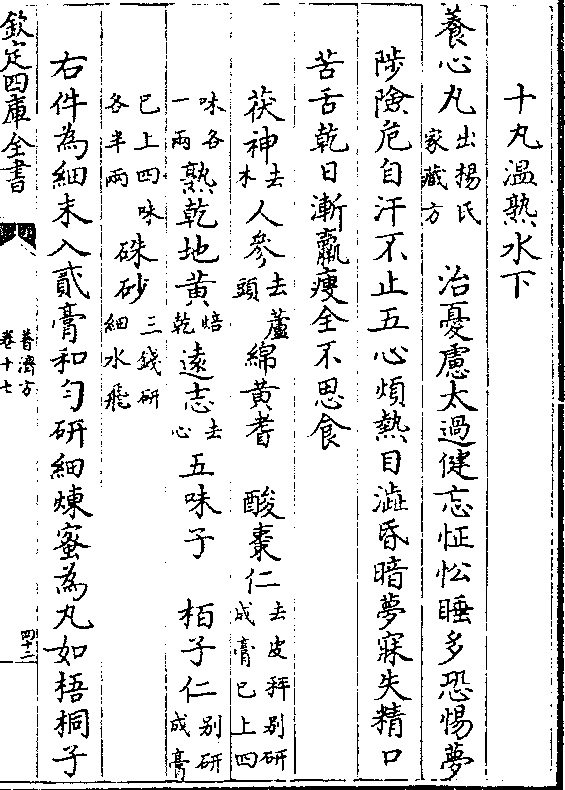 十丸温熟水下
養心丸出楊氏家藏方 治憂慮太過健忘怔忪睡多恐惕夢
陟險危自汗不止五心煩熱目澁昏暗夢寐失精口
苦舌乾日漸羸瘦全不思食
茯神去木 人參去蘆頭 綿黄耆 酸棗仁去皮秤别研成膏已上四
味各一兩 熟乾地黄焙乾 逺志去心 五味子 栢子仁别研成膏
已上四味各半兩 硃砂三錢研細水飛
右件為細末入貳膏和匀研細煉蜜為丸如梧桐子
欽定四庫全書
普濟方
卷十七
四十二